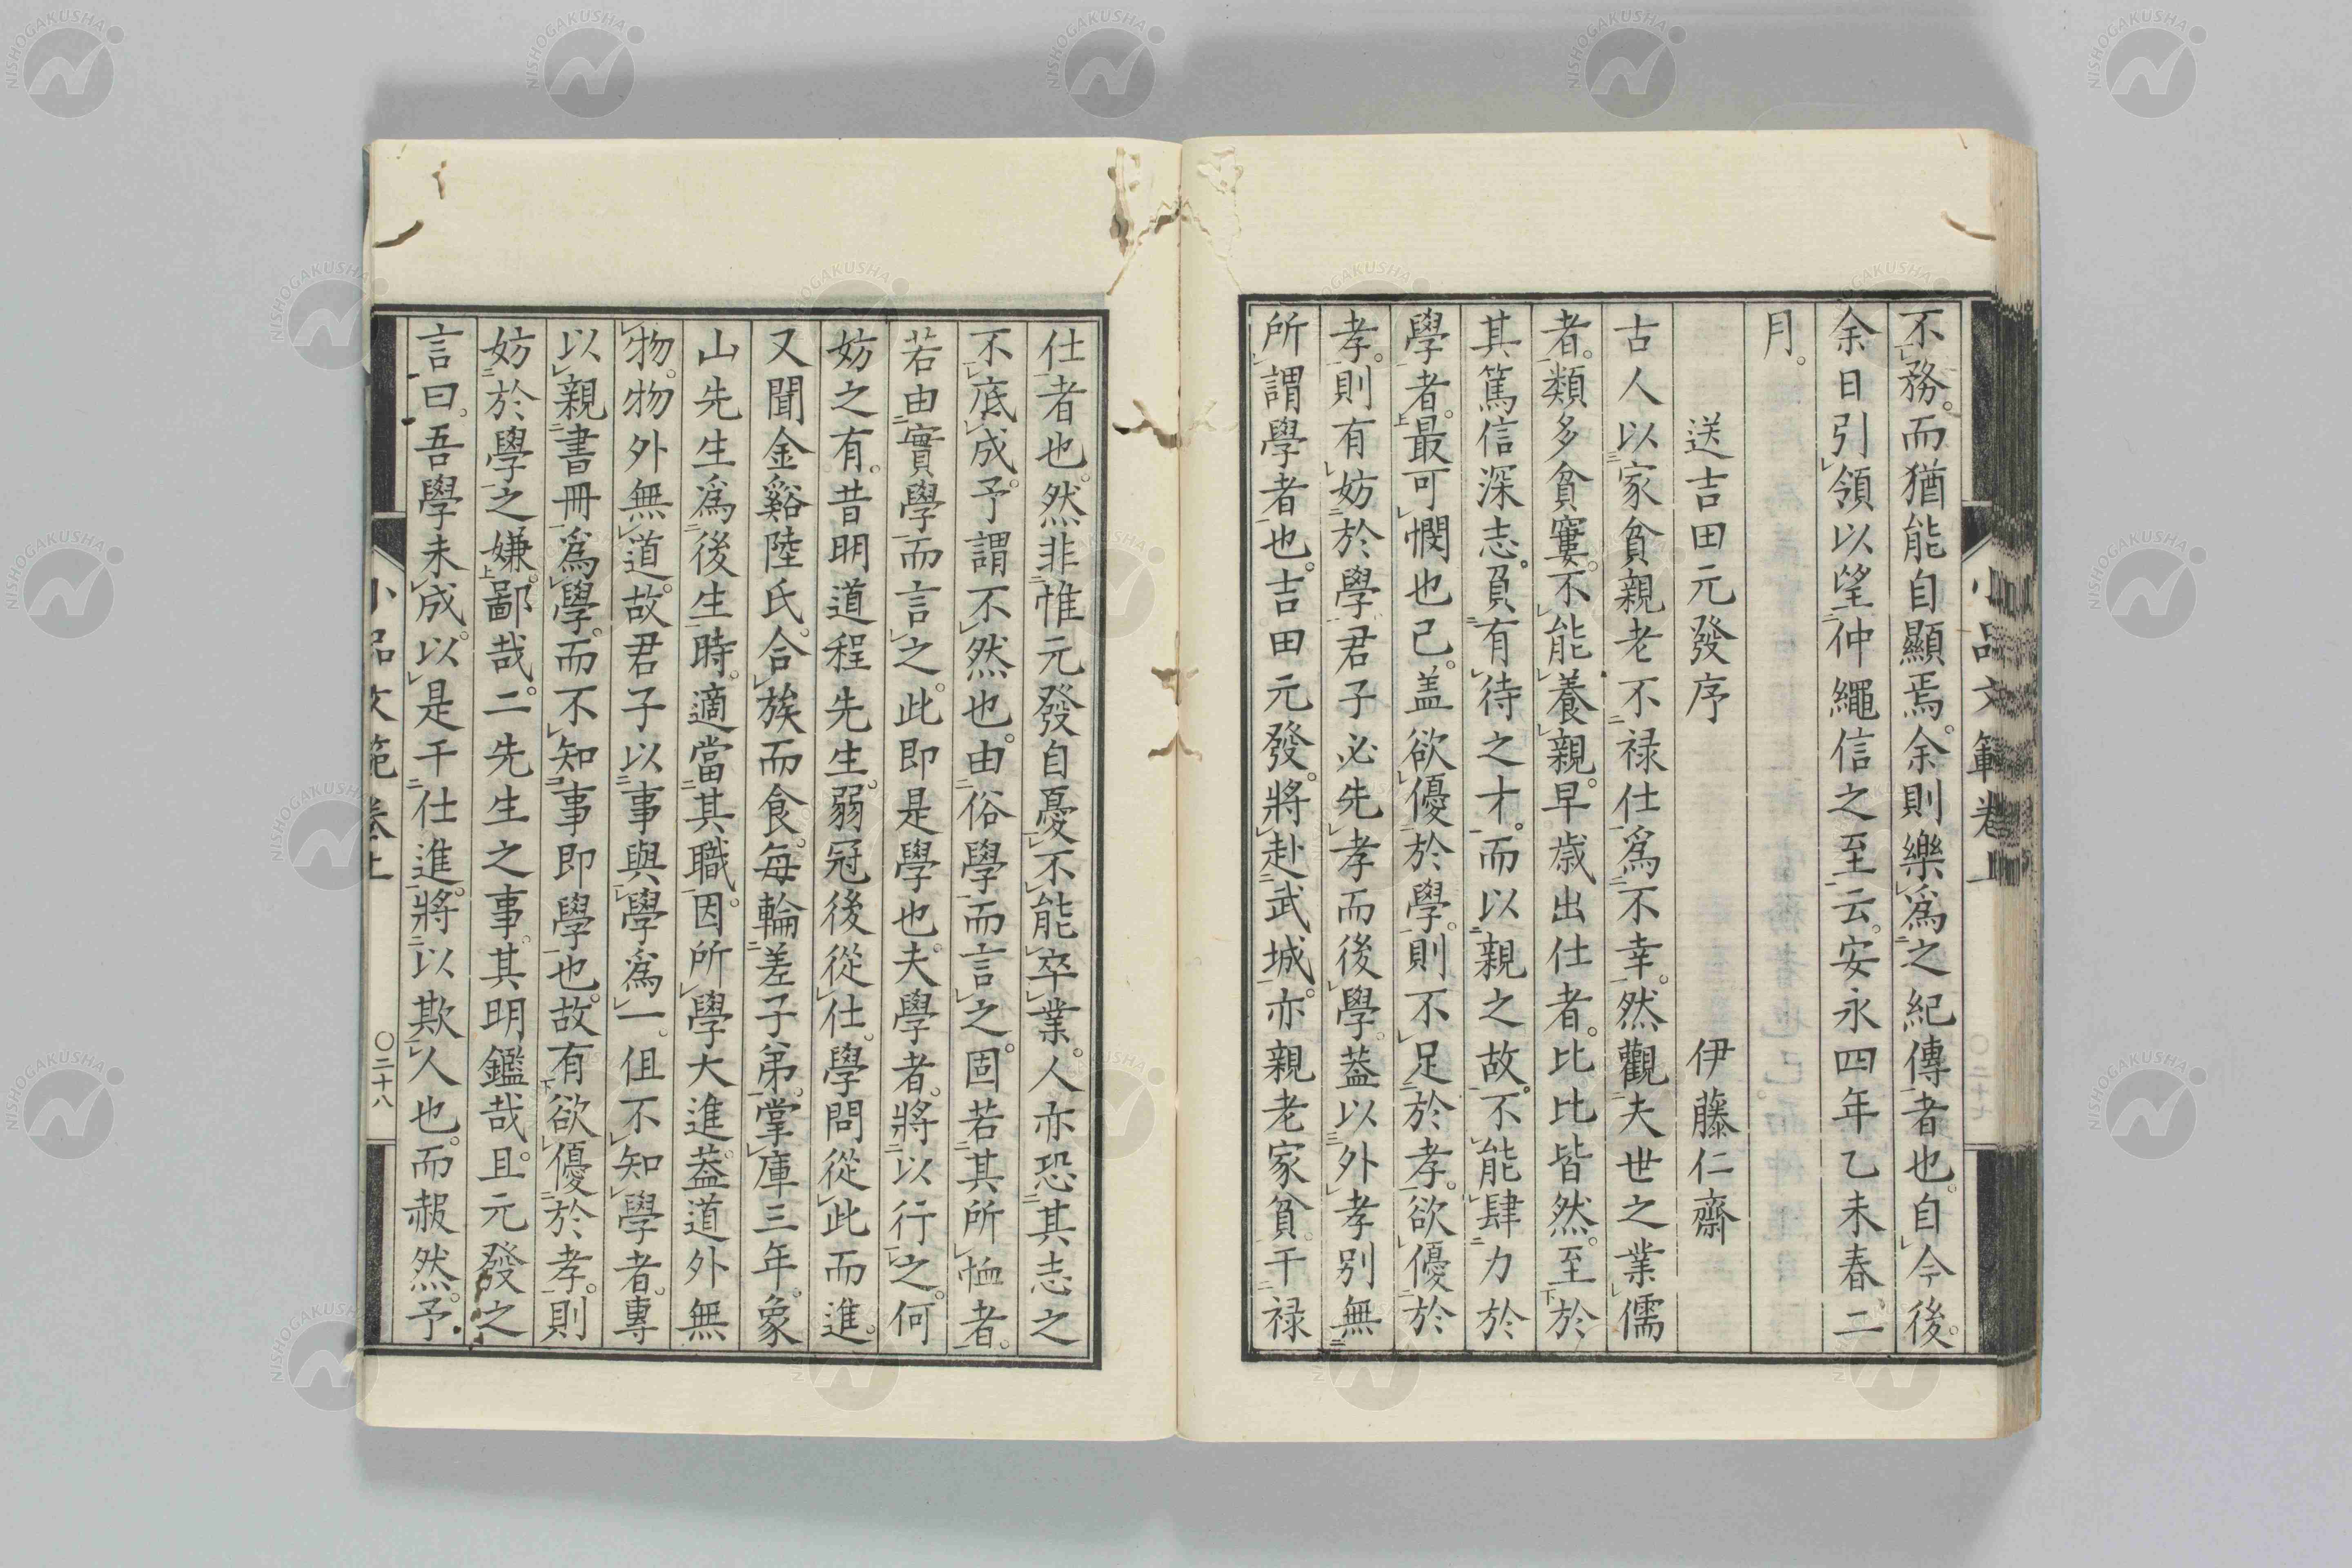 不務。而猶能自顯焉。余則樂爲之紀傳者也。自今後。
余日引領以望仲繩信之至云。安永四年乙未春二
月。
送吉田元發序 伊藤仁齋
古人以家貧親老不祿仕爲不幸。然觀夫世之業儒
者。類多貧窶。不能養親。早歲出仕者。比比皆然。至於
其篤信深志。負有待之才。而以親之故。不能肆力於
學者。最可憫也已。盖欲優於學。則不足於孝。欲優於
孝。則有妨於學。君子必先孝而後學。蓋以外孝別無
所謂學者也。吉田元發。將赴武城。亦親老家貧。干祿
小品文範卷上
仕者也。然非惟元發自憂不能卒業。人亦恐其志之
不底成。予謂不然也。由俗學而言之。固若其所恤者。
若由實學而言之。此即是學也。夫學者。將以行之。何
妨之有。昔明道程先生。弱冠後從仕。學問從此而進。
又聞金谿陸氏。合族而食。每輪差子弟。掌庫三年。象
山先生爲後生時。適當其職。因所學大進。蓋道外無
物。物外無道。故君子以事與學爲一。但不知學者。專
以親書冊爲學。而不知事即學也。故有欲優於孝。則
妨於學之嫌。鄙哉。二先生之事。其明鑑哉。且元發之
言曰。吾學未成。以是干仕進。將以欺人也。而赧然。予
小品文範卷上 〇二十八
NISHOGAKUSHA